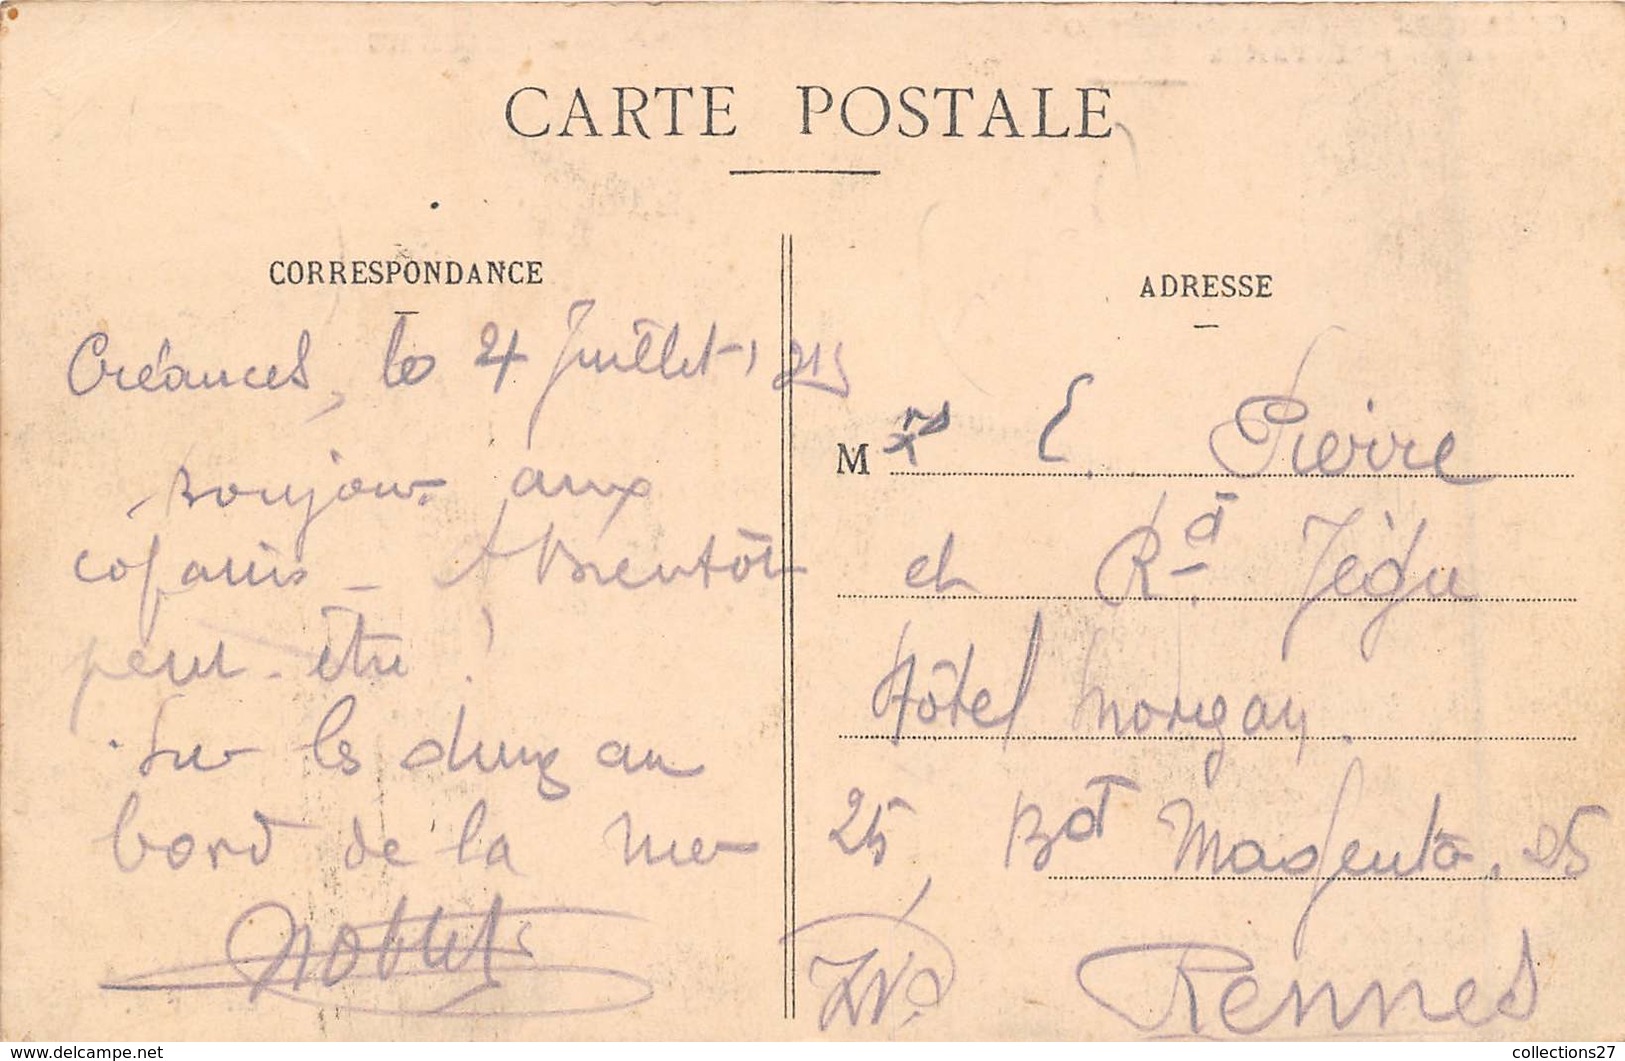 CARTE POSTALE
CORRESPONDANCE
Créances, le 4 Juillet
Bonjour aux
copains - A Bientôt
peut-être !
Sur les dunes au
bord de la mer
ADRESSE
M rs E. Pierre
et Rd Jégu
Hôtel Morgan.
25, Bd Magenta. 25
Rennes
collections27